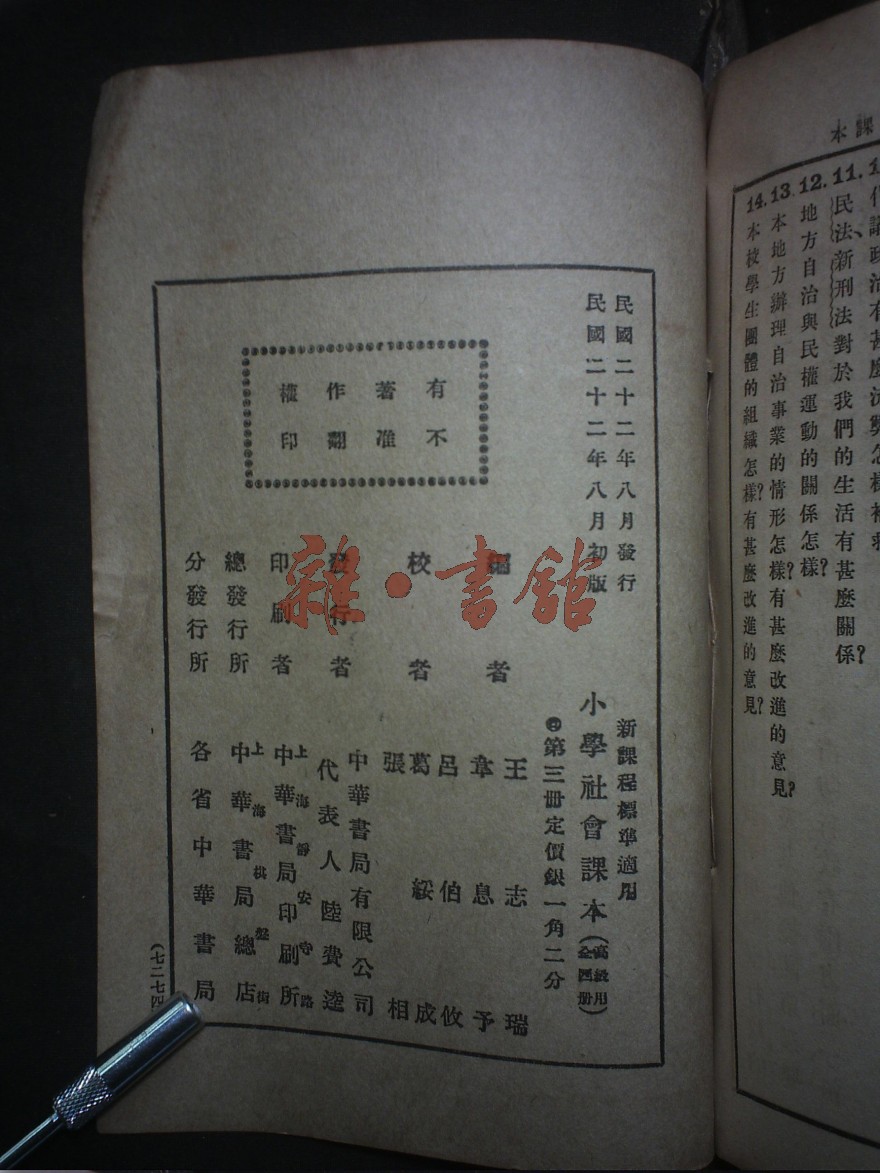 本課
代議政治有甚麼決弊怎樣補救
11.民法、新刑法對於我們的生活有甚麼關係?
12.地方自治與民權運動的關係怎樣?
13.本地方辦理自治事業的情形怎樣?有甚麼改進的意見?
14.本校學生團體的組織怎樣?有甚麼改進的意見?
民國二十二年八月發行
民國二十二年八月初版
有不
著准
作翻
權印
新課程標準適用
小學社會課本(高級用全四册)
第三冊定價銀一角二分
編者
王志瑞
章息予
校者
呂伯攸
葛綏成
張相
發行者
中華書局有限公司
代表人陸費逵
印刷者
上海靜安寺路
中華書局印刷所
總發行所
上海棋盤街
中華書局總店
分發行所
各省中華書局
(七二七四
雜·書館